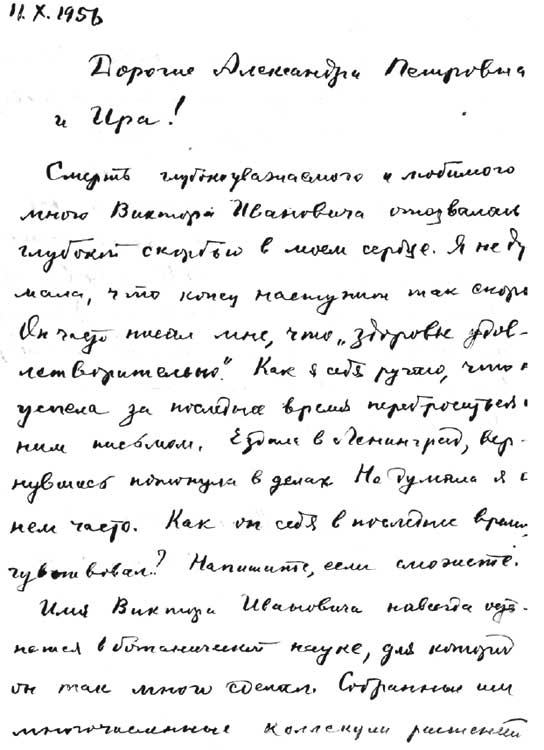 11. X. 1956
Дорогие Александра Петровна
и Ира!
Смерть глубокоуважаемого и любимого
мною Виктора Ивановича отозвалась
глубокой скорбью в моем сердце. Я не ду
мала, что конец наступит так скоро
Он часто писал мне, что „здоровье удов-
летворительно“. Как я себя ругаю, что
успела за последнее время переброситься
ним письмом. Ездила в Ленинград, вер-
нувшись потонула в делах Но думала я о
нем часто. Как он себя в последнее время
чувствовал? Напишите, если сможете.
Имя Виктора Ивановича навсегда оста-
нется в ботанической науке, для которой
он так много сделал. Собранные им
многочисленные коллекции растений